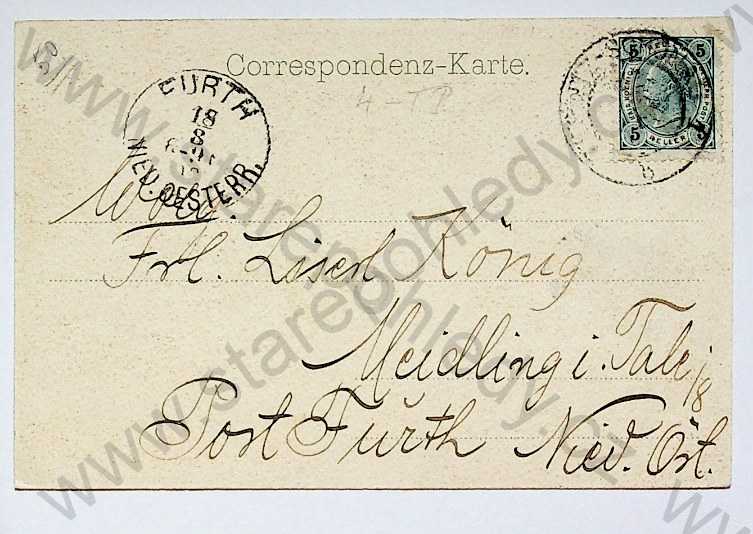 Correspondenz-Karte.
FURTH
18
8
NIED. OESTERR.
5 5
5 HELLER 5
4-TP
Frl. Liserl König
Meidling i. Tale
Post Fürth Nied. Öst.
www.starepohledy.cz